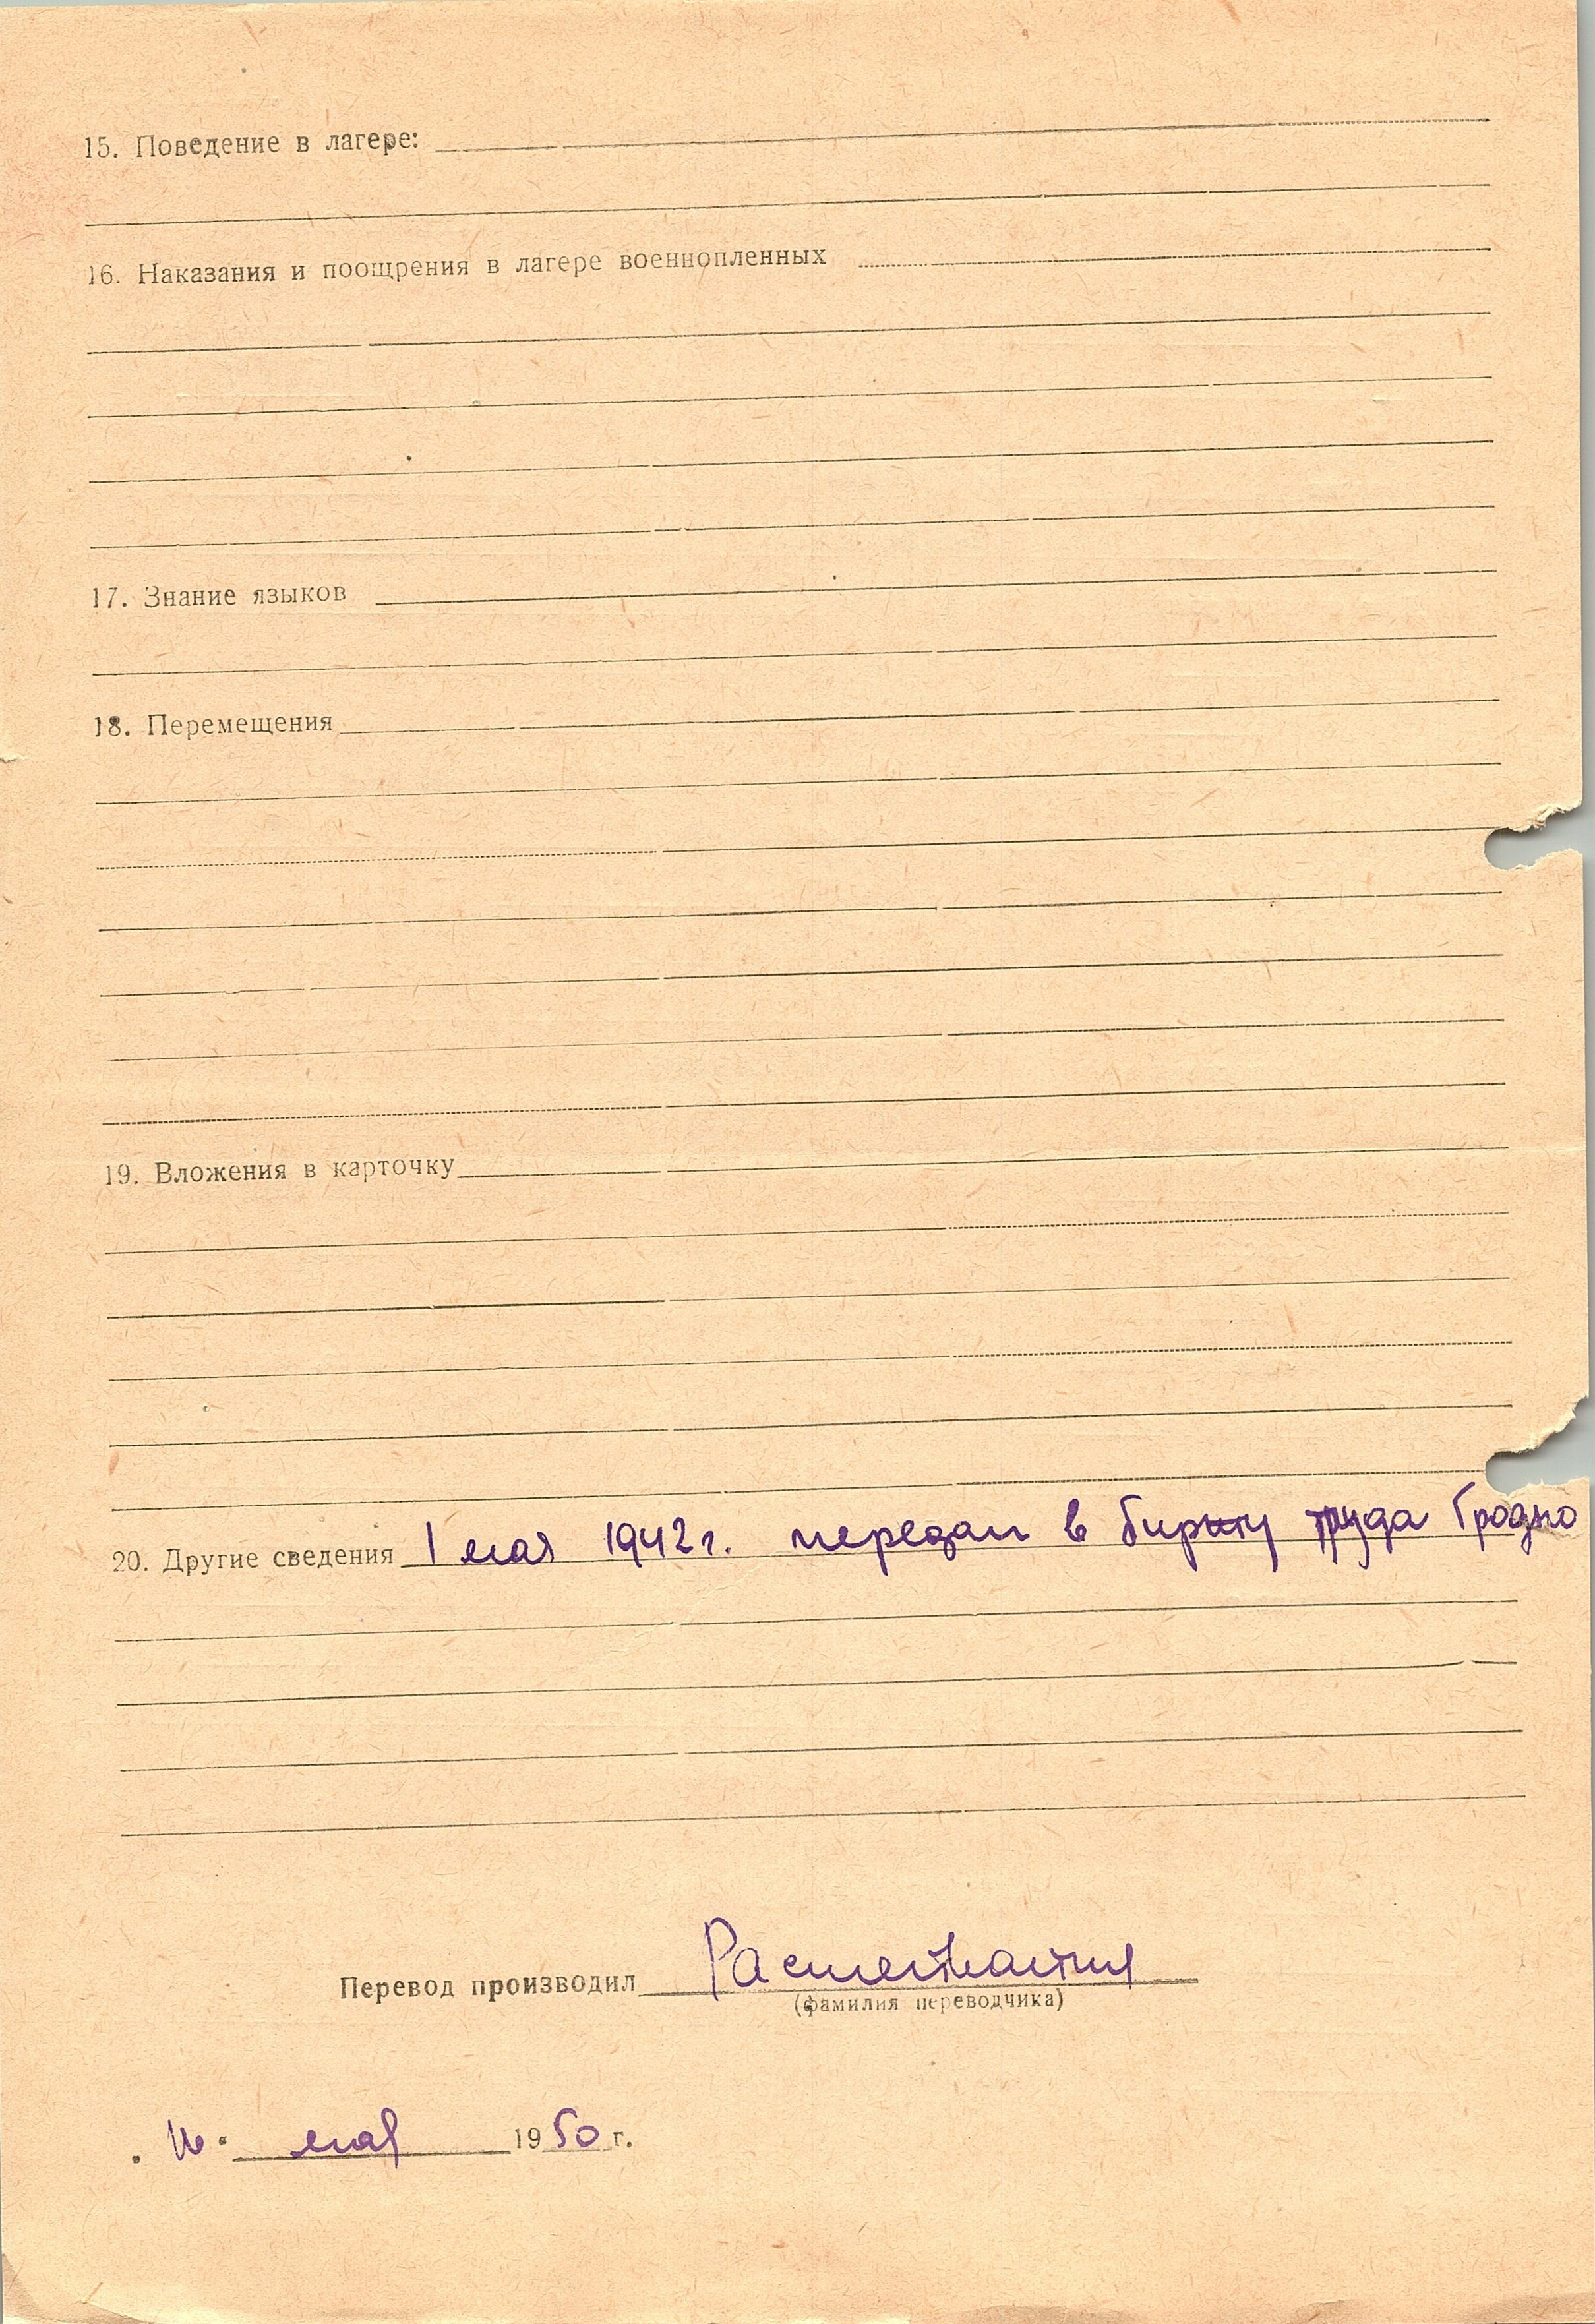 15. Поведение в лагере:
16. Наказания и поощрения в лагере военнопленных
17. Знание языков
18. Перемещения
19. Вложения в карточку
20. Другие сведения 1 мая 1942 г. передан в биржу труда Гродно
Перевод производил
(фамилия переводчика)
мая 1950 г.